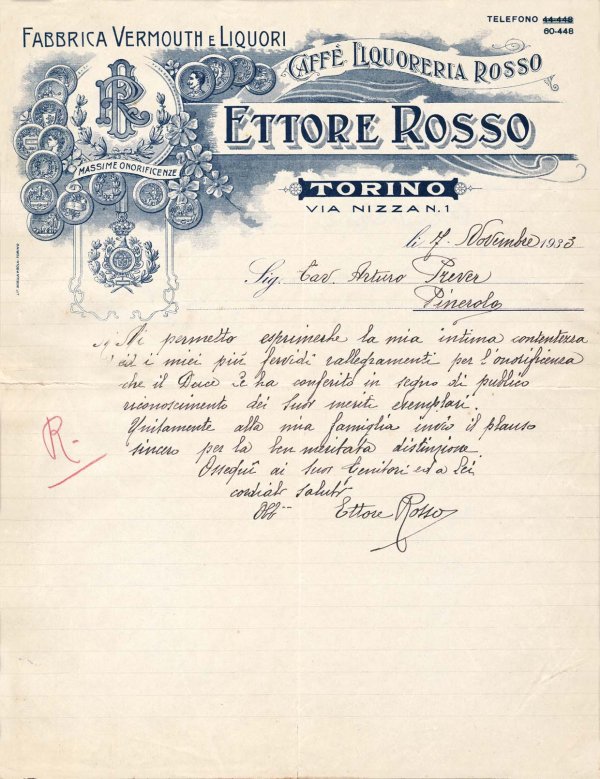 TELEFONO 44-448
60-448
FABBRICA VERMOUTH E LIQUORI
CAFFÈ LIQUORERIA ROSSO
ETTORE ROSSO
MASSIME ONORIFICENZE
TORINO
VIA NIZZA N. 1
li 7. Novembre 1933
Sig. Cav. Arturo Prever
Pinerolo
Mi permetto esprimerLe la mia intima contentezza
ed i miei più fervidi rallegramenti per l'onorificenza
che il Duce Le ha conferito in segno di pubblico
riconoscimento dei Suoi meriti esemplari.
Unitamente alla mia famiglia invio il plauso
sincero per la ben meritata distinzione.
Ossequi ai Suoi Genitori ed a Lei
cordiali saluti
Obb
Ettore Rosso
R.